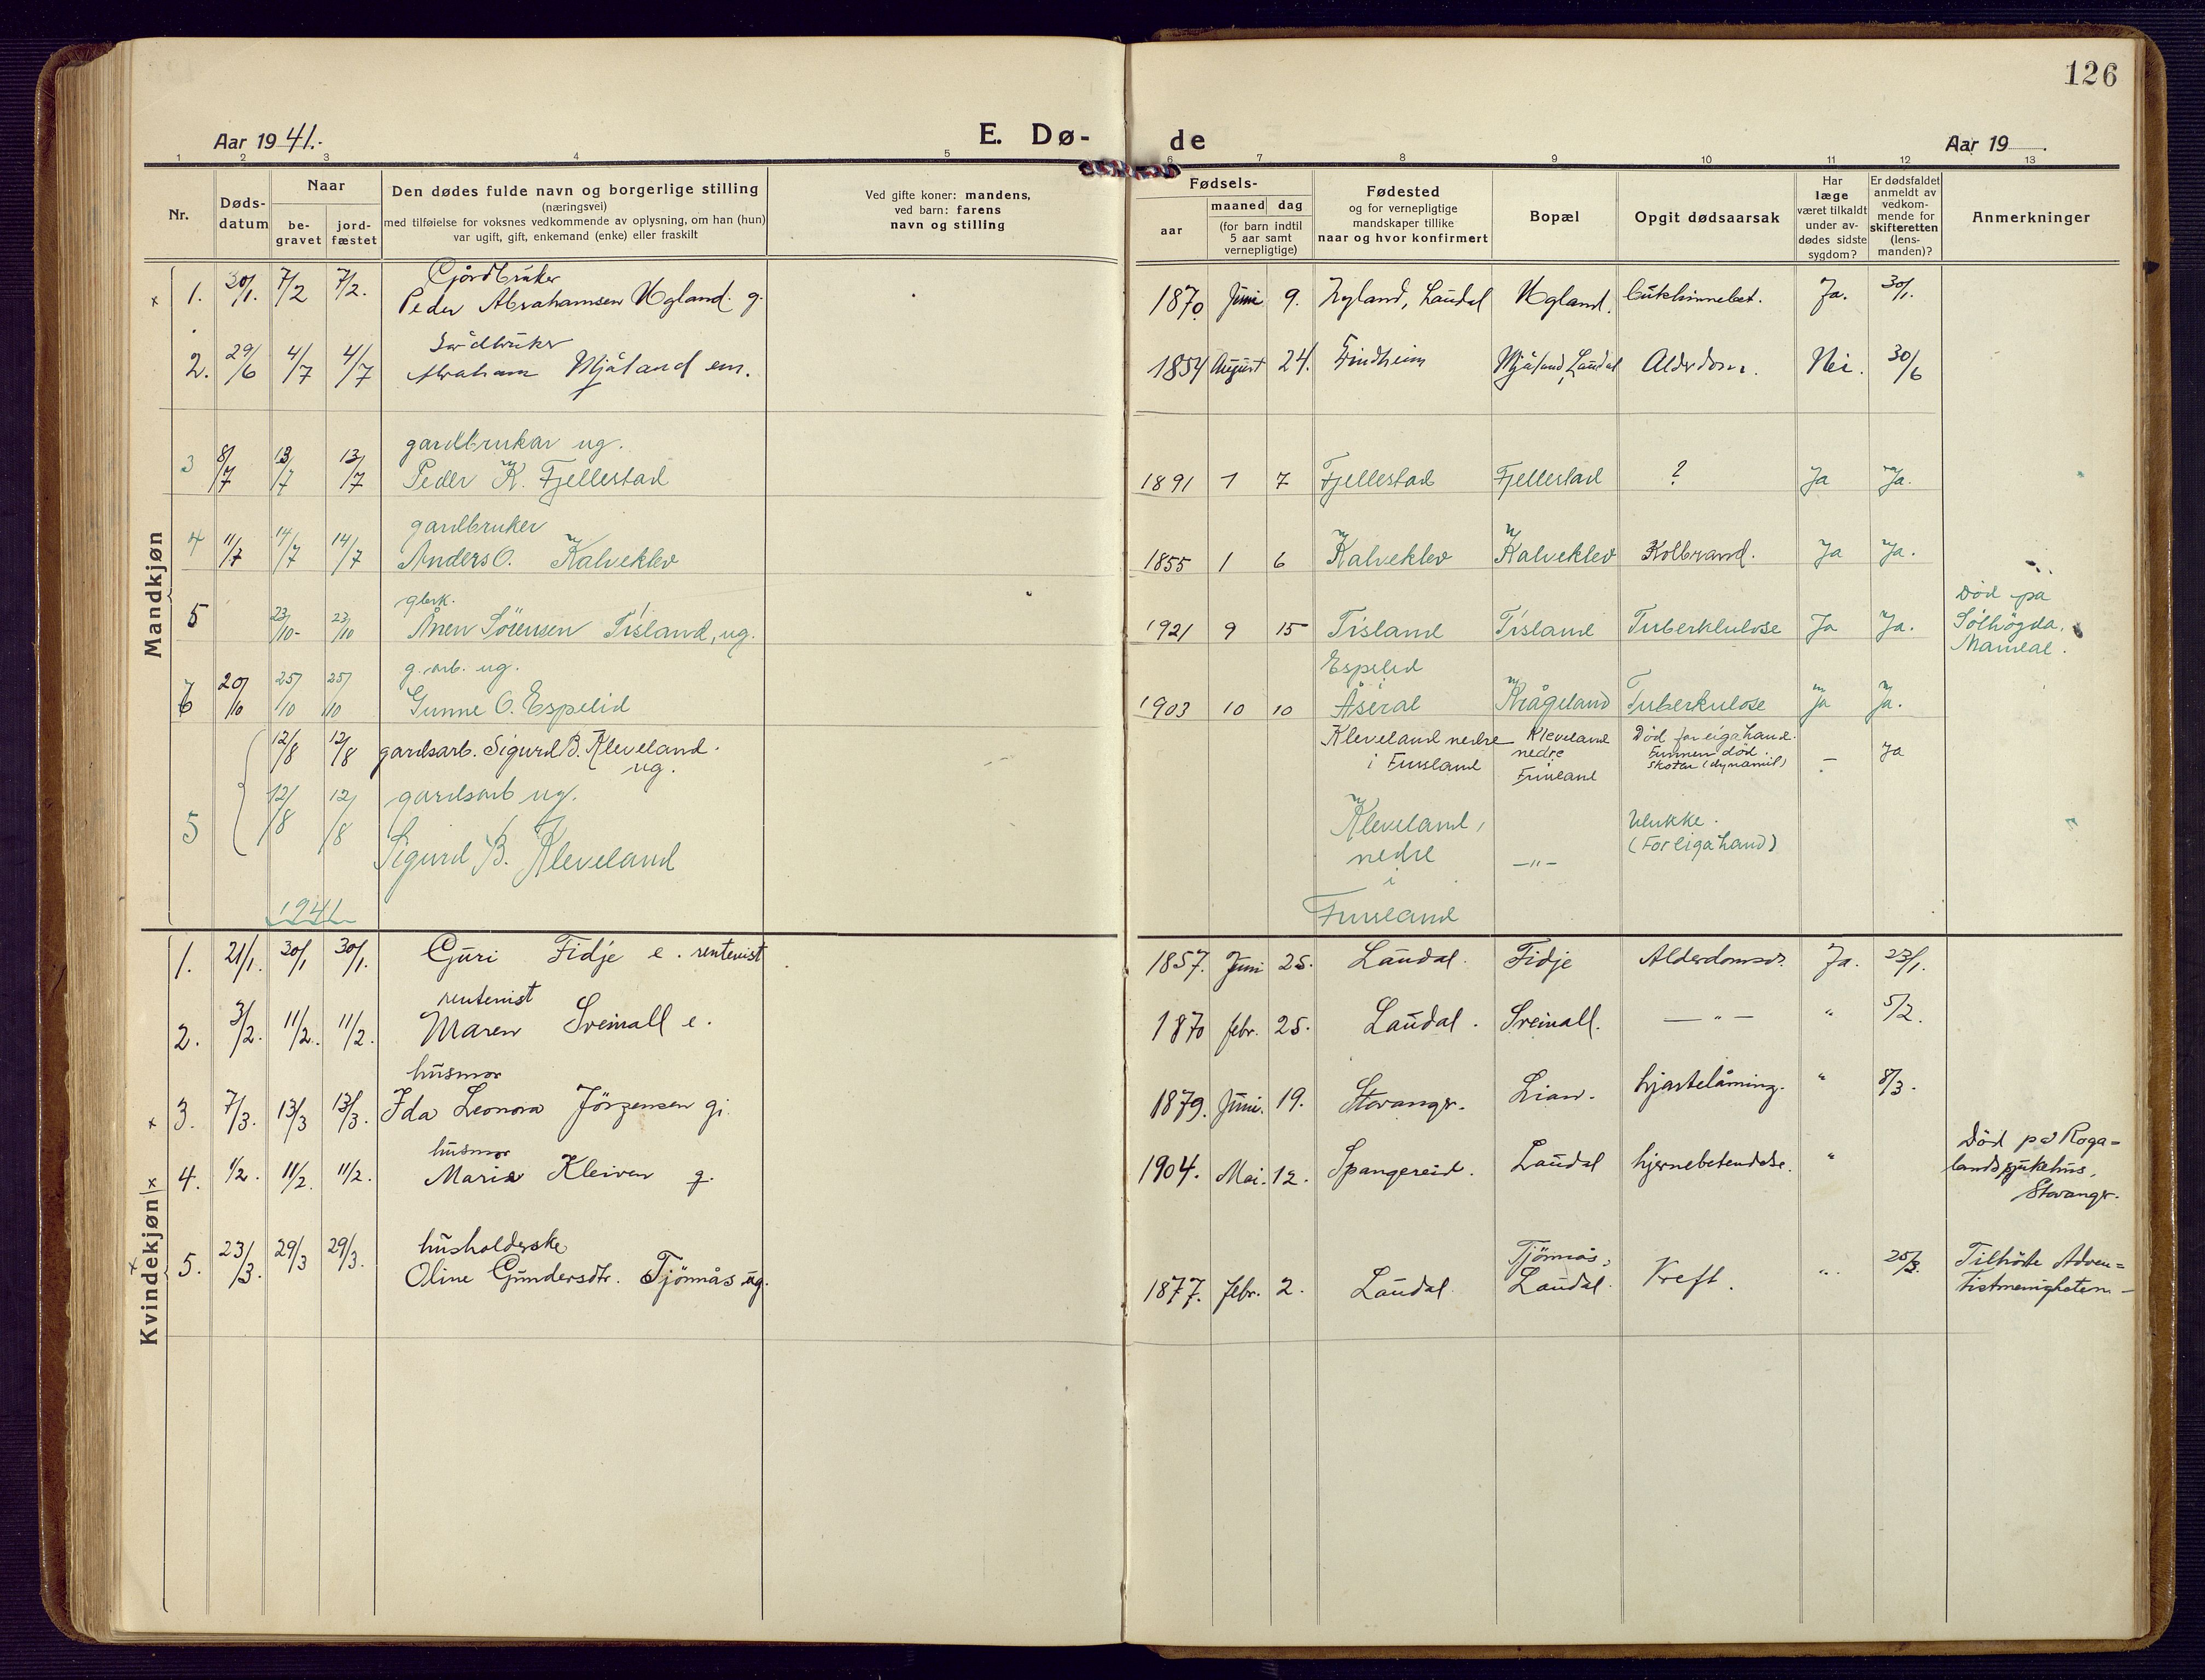 126
Aar 19 41.-
E. Dø-
de
Aar 19
1 2 3 4 5 6 7 8 9 10 11 12 13
Nr.
Døds-
datum
Naar
be-
gravet
jord-
fæstet
Den dødes fulde navn og borgerlige stilling
(næringsvei)
med tilføielse for voksnes vedkommende av oplysning, om han (hun)
var ugift, gift, enkemand (enke) eller fraskilt
Ved gifte koner: mandens,
ved barn: farens
navn og stilling
Fødsels-
aar
maaned dag
(for barn indtil
5 aar samt
vernepligtige)
Fødested
og for vernepligtige
mandskaper tillike
naar og hvor konfirmert
Bopæl
Opgit dødsaarsak
Har
læge
været tilkaldt
under av-
dødes sidste
sygdom?
Er dødsfaldet
anmeldt av
vedkom-
mende for
skifteretten
(lens-
manden)?
Anmerkninger
Mandkjøn
Gjårdbruker
x 1. 30/1. 7/2 7/2. Peder Abrahamsen Ugland. g. 1870 Juni 9. Øyland, Laudal Ugland. Ja. 30/1.
Gårdbruker
2. 29/6 4/7 4/7 Abraham Mjåland em. 1854 August 24. Grindheim Mjåland, Laudal Alderdom. Nei. 30/6
gardbrukar ug.
3 8/7 13/7 13/7 Peder K. Fjellestad 1891 1 7 Fjellestad Fjellestad ? Ja Ja.
gardbruker
4 11/7 14/7 14/7 Anders O. Kalveklev 1855 1 6 Kalveklev Kalveklev Kolbrand. Ja Ja.
gbrk.
5 23/10- 23/10 Ånen Sörensen Tisland, ug. 1921 9 15 Tisland Tisland Tuberklulose Ja Ja.
Död pa
Solhögda,
Mandal.
g. arb. ug.
6 20/10 25/10 25/10 Gunne O. Espelid 1903 10 10 Espelid i Åseral Krågeland Tuberkulose Ja Ja.
12/8 12/8 gardsarb. Sigurd B. Kleveland.
ug.
Kleveland nedre
i Finsland
Kleveland
nedre
i
Finsland
Död for eiga hand.
Funnen död.
Skoten (dynamit)
- Ja
5 12/8 12/8 gardsarb ug.
Sigurd B. Kleveland
Kleveland,
nedre
i
Finsland
-"-
Ulukke.
(For eiga hand)
1941
Kvindekjøn
1. 21/1. 30/1 30/1. Guri Fidje e. rentenist 1857. Juni 25. Laudal. Fidje Alderdomsv. Ja. 23/1.
rentenist
2. 3/2. 11/2. 11/2. Maren Sveinall e. 1870 febr. 25. Laudal. Sveinall. — " — " 5/2.
husmor
x 3. 7/3. 13/3 13/3. Ida Leonora Jörgensen gi. 1879. Juni. 19. Stavanger. Lian. hjartelåming. " 8/3.
husmor
x 4. 1/2. 11/2. 11/2. Maria Kleiven g. 1904. Mai. 12. Spangereid. Laudal hjernebetendelse. "
Död på Roga=
lands sjukehus,
Stavanger.
husholderske
x 5. 23/3. 29/3 29/3. Oline Gundersdtr. Tjömås ug. 1877. febr. 2. Laudal. Tjömås, Laudal. Kreft. " 25/3.
Tilhörte Adven=
tistmenigheten.—